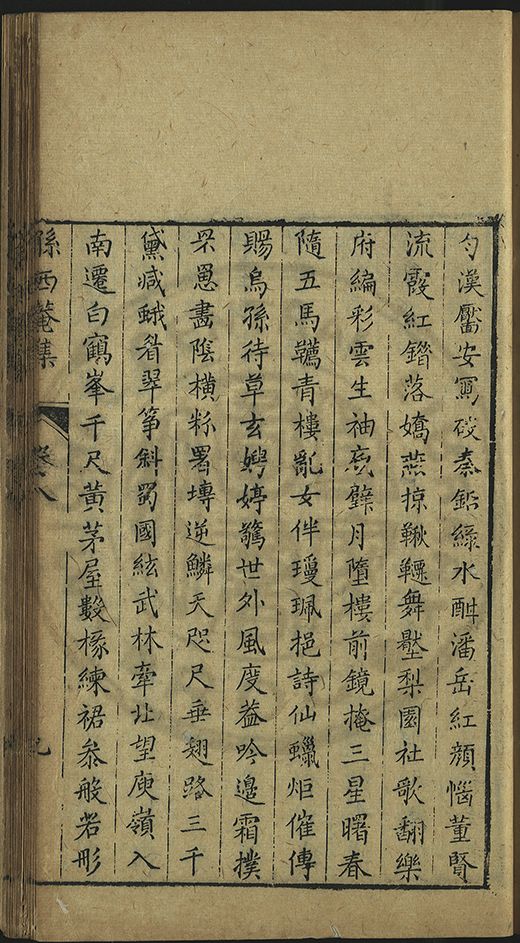 勻漢靨安寫破秦鈿綠水酣潘岳紅顔惱董賢
流霞紅鐕落嬌燕掠鞦韆舞壓梨園社歌翻樂
府編彩雲生袖底璧月墮樓前鏡掩三星曙春
隨五馬韉青樓亂女伴瓊珮挹詩仙蠟炬催傳
賜烏孫待草玄娉婷驚世外風度益吟邊霜撲
罘罳畫陰橫粉署塼逆鱗天咫尺垂翅路三千
黛減蛾眉翠箏斜蜀國絃武林牽北望庾嶺入
南遷白鶴峯千尺黃茅屋數椽練裙叅般若形
孫西菴集
卷八
九